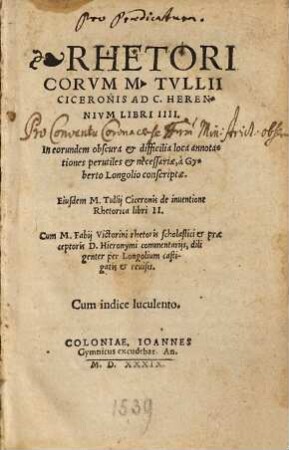 Pro Predicatum.
RHETORI
CORVM M. TVLLII
CICERONIS AD C. HEREN-
NIVM LIBRI IIII.
Pro Conventu Min: strict: obser
In eorundem obscura & difficilia loca annota-
tiones perutiles & necessariæ, à Gy-
berto Longolio conscriptæ.
Eiusdem M. Tullij Ciceronis de inuentione
Rhetorica libri II.
Cum M. Fabij Victorini rhetoris scholastici & præ
ceptoris D. Hieronymi commentarijs, dili
genter per Longolium casti-
gatis & reuisis.
Cum indice luculento.
COLONIAE, IOANNES
Gymnicus excudebat. An.
M. D. XXXIX.
1539